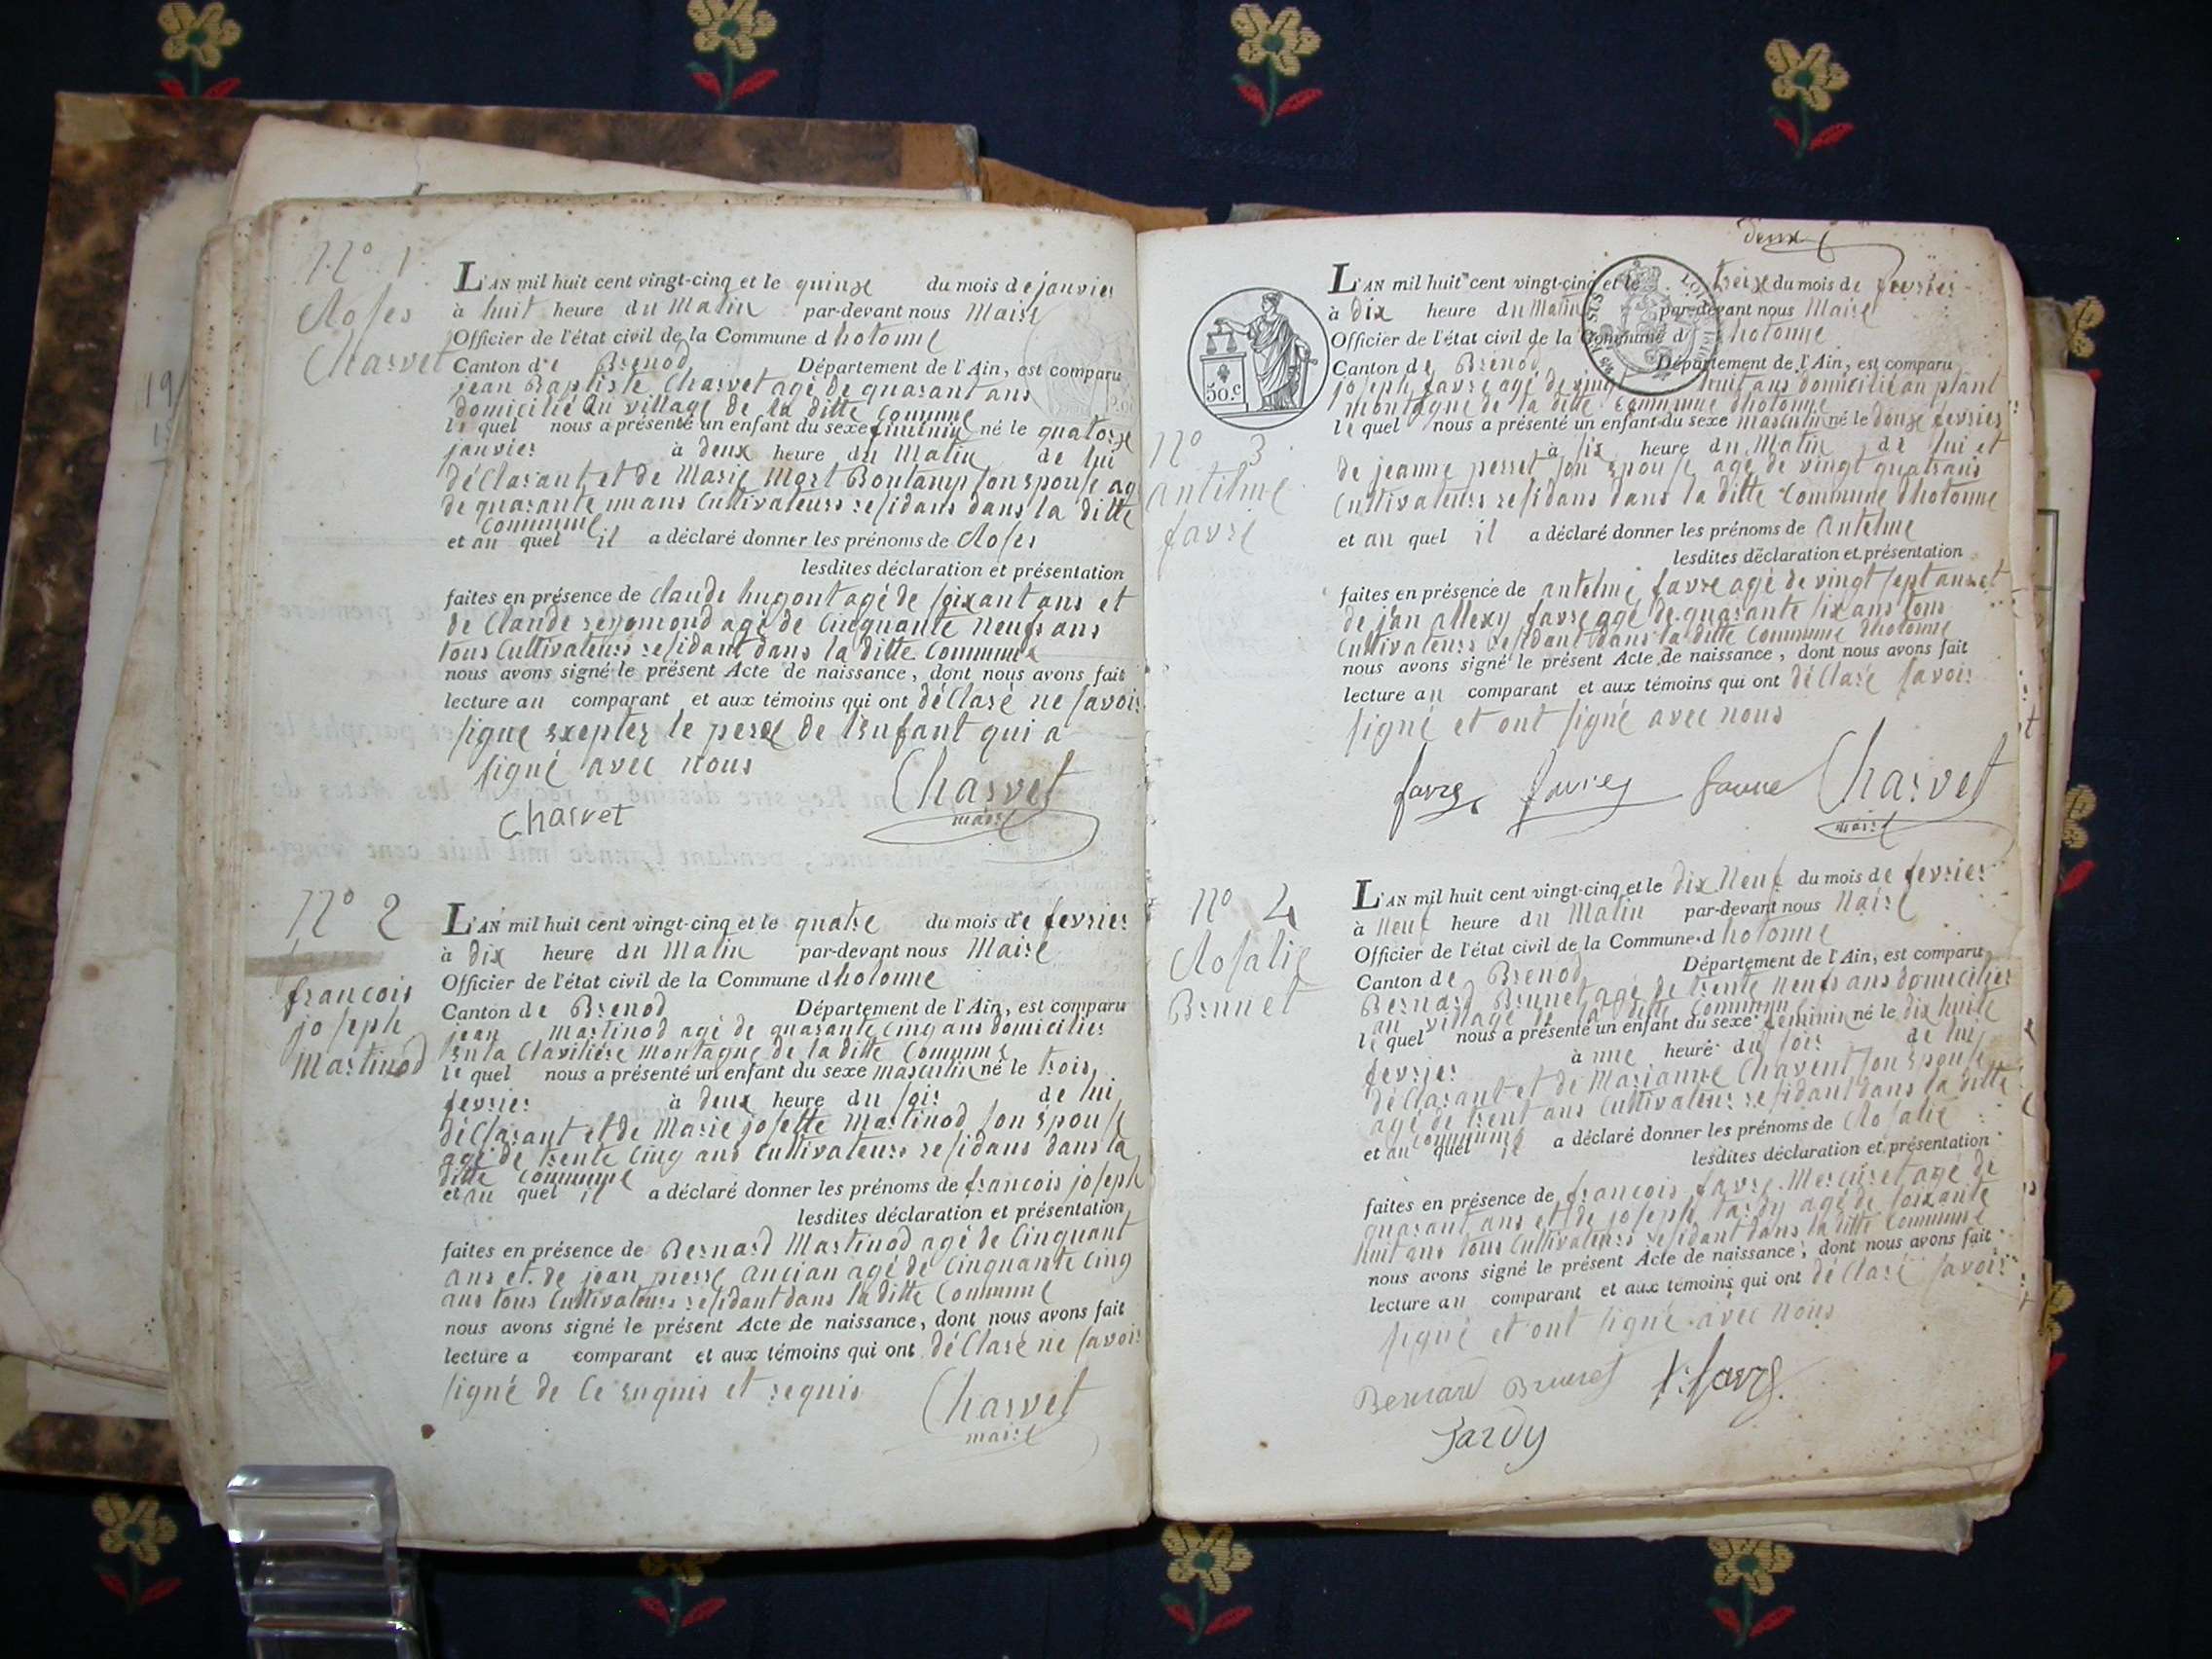 N° 1
Roses
Charvet
L'AN mil huit cent vingt-cinq et le quinze du mois de janvier
à huit heure du Matin par-devant nous Maire
Officier de l'état civil de la Commune dhotonne
Canton de Brenod Département de l'Ain, est comparu
jean Baptiste Charvet agé de quarant ans
domicilié au village de la ditte Commune
le quel nous a présenté un enfant du sexe feminin né le quatorze
janvier à deux heure du Matin de lui
déClarant et de Marie Mort Bontamp son epouse ag
de quarante un ans Cultivateurs residans dans la ditte
Commune
et au quel il a déclaré donner les prénoms de Roses
lesdites déclaration et présentation
faites en présence de Claude hugont agé de soixant ans et
de Claude reymond agé de Cinquante neufs ans
tous Cultivateurs residant dans la ditte Commune
nous avons signé le présent Acte de naissance, dont nous avons fait
lecture au comparant et aux témoins qui ont déClaré ne savoir
signe excepter le pere de lenfant qui a
signé avec nous
Charvet Charvet
maire
N° 2
francois
joseph
Martinod
L'AN mil huit cent vingt-cinq et le quatre du mois de fevrier
à dix heure du Matin par-devant nous Maire
Officier de l'état civil de la Commune dhotonne
Canton de Brenod Département de l'Ain, est comparu
jean Martinod agé de quarante Cinq ans domicilier
en la Clavilière Montagne de la ditte Commune
le quel nous a présenté un enfant du sexe masculin né le trois
fevrier à deux heure du soir de lui
déClarant et de Marie josette Martinod son epouse
agé de trente Cinq ans Cultivateurs residans dans la
ditte Commune
et au quel il a déclaré donner les prénoms de francois joseph
lesdites déclaration et présentation
faites en présence de Bernard Martinod agé de Cinquant
ans et de jean pierre ancian agé de Cinquante Cinq
ans tous Cultivateurs residant dans la ditte Commune
nous avons signé le présent Acte de naissance, dont nous avons fait
lecture a comparant et aux témoins qui ont déClaré ne savoir
signé de Ce enquis et requis
Charvet
maire
deux
50.c
N° 3
antelme
favre
L'AN mil huit cent vingt-cinq et le treize du mois de fevrier
à dix heure du Matin par-devant nous Maire
Officier de l'état civil de la Commune d hotonne
Canton de Brenod Département de l'Ain, est comparu
joseph favre agé de vingt huit ans domicilié au plant
montagne de la ditte Commune dhotonne
le quel nous a présenté un enfant du sexe masculin né le douze fevrier
à six heure du Matin de lui et
de jeanne perret son epouse agé de vingt quatr ans
Cultivateurs residans dans la ditte Commune dhotonne
et au quel il a déclaré donner les prénoms de antelme
lesdites déclaration et présentation
faites en présence de antelme favre agé de vingt sept ans et
de jean allexy favre agé de quarante six ans tous
Cultivateurs residant dans la ditte Commune dhotonne
nous avons signé le présent Acte de naissance, dont nous avons fait
lecture au comparant et aux témoins qui ont déClaré savoir
signé et ont signé avec nous
favre favre favre Charvet
maire
N° 4
Rosalie
Brunet
L'AN mil huit cent vingt-cinq et le dix Neuf du mois de fevrier
à Neuf heure du Matin par-devant nous Maire
Officier de l'état civil de la Commune d hotonne
Canton de Brenod Département de l'Ain, est comparu
Bernard Brunet agé de trente neufs ans domicilier
au village de la ditte Commune
le quel nous a présenté un enfant du sexe feminin né le dix huite
fevrier à une heure du soir de lui
déClarant et de Marianne Chavent son epouse
agé de trent ans Cultivateur residant dans la ditte
Commune
et au quel il a déclaré donner les prénoms de Rosalie
lesdites déclaration et présentation
faites en présence de francois favre Mercuret agé de
quarant ans et de joseph tardy agé de soixante
huit ans tous Cultivateurs residant dans la ditte Commune
nous avons signé le présent Acte de naissance, dont nous avons fait
lecture au comparant et aux témoins qui ont déClaré savoir
signé et ont signé avec nous
Bernard Brunet f. favre
Tardy